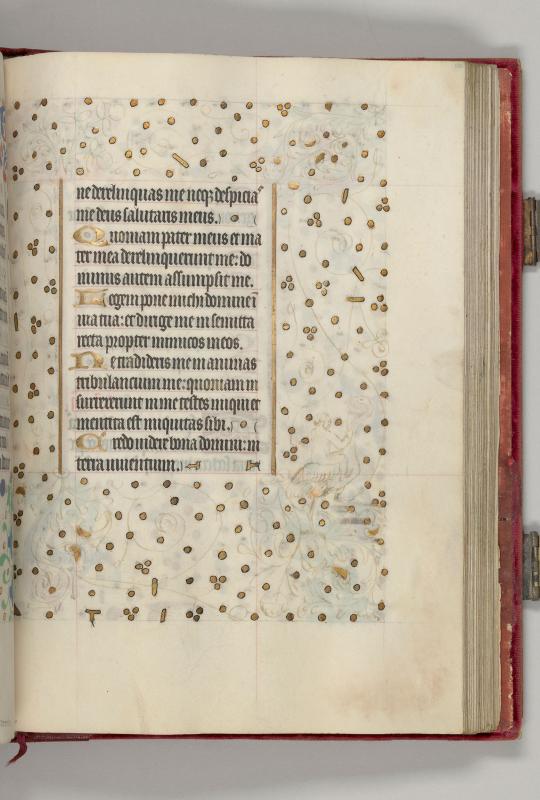 me derelinquas me neq; despicia᷑
me deus salutaris meus.
Quoniam pater meus et ma
ter mea dereliquerunt me: do
minus autem assumpsit me.
Legem pone michi domine ĩ
uia tua: et dirige me in semita
recta propter inimicos meos.
Ne tradideris me in animas
tribulancium me: quoniam in
surrexerunt in me testes iniqui et
mentita est iniquitas sibi.
Credo videre bona domini: in
terra uiuentium.